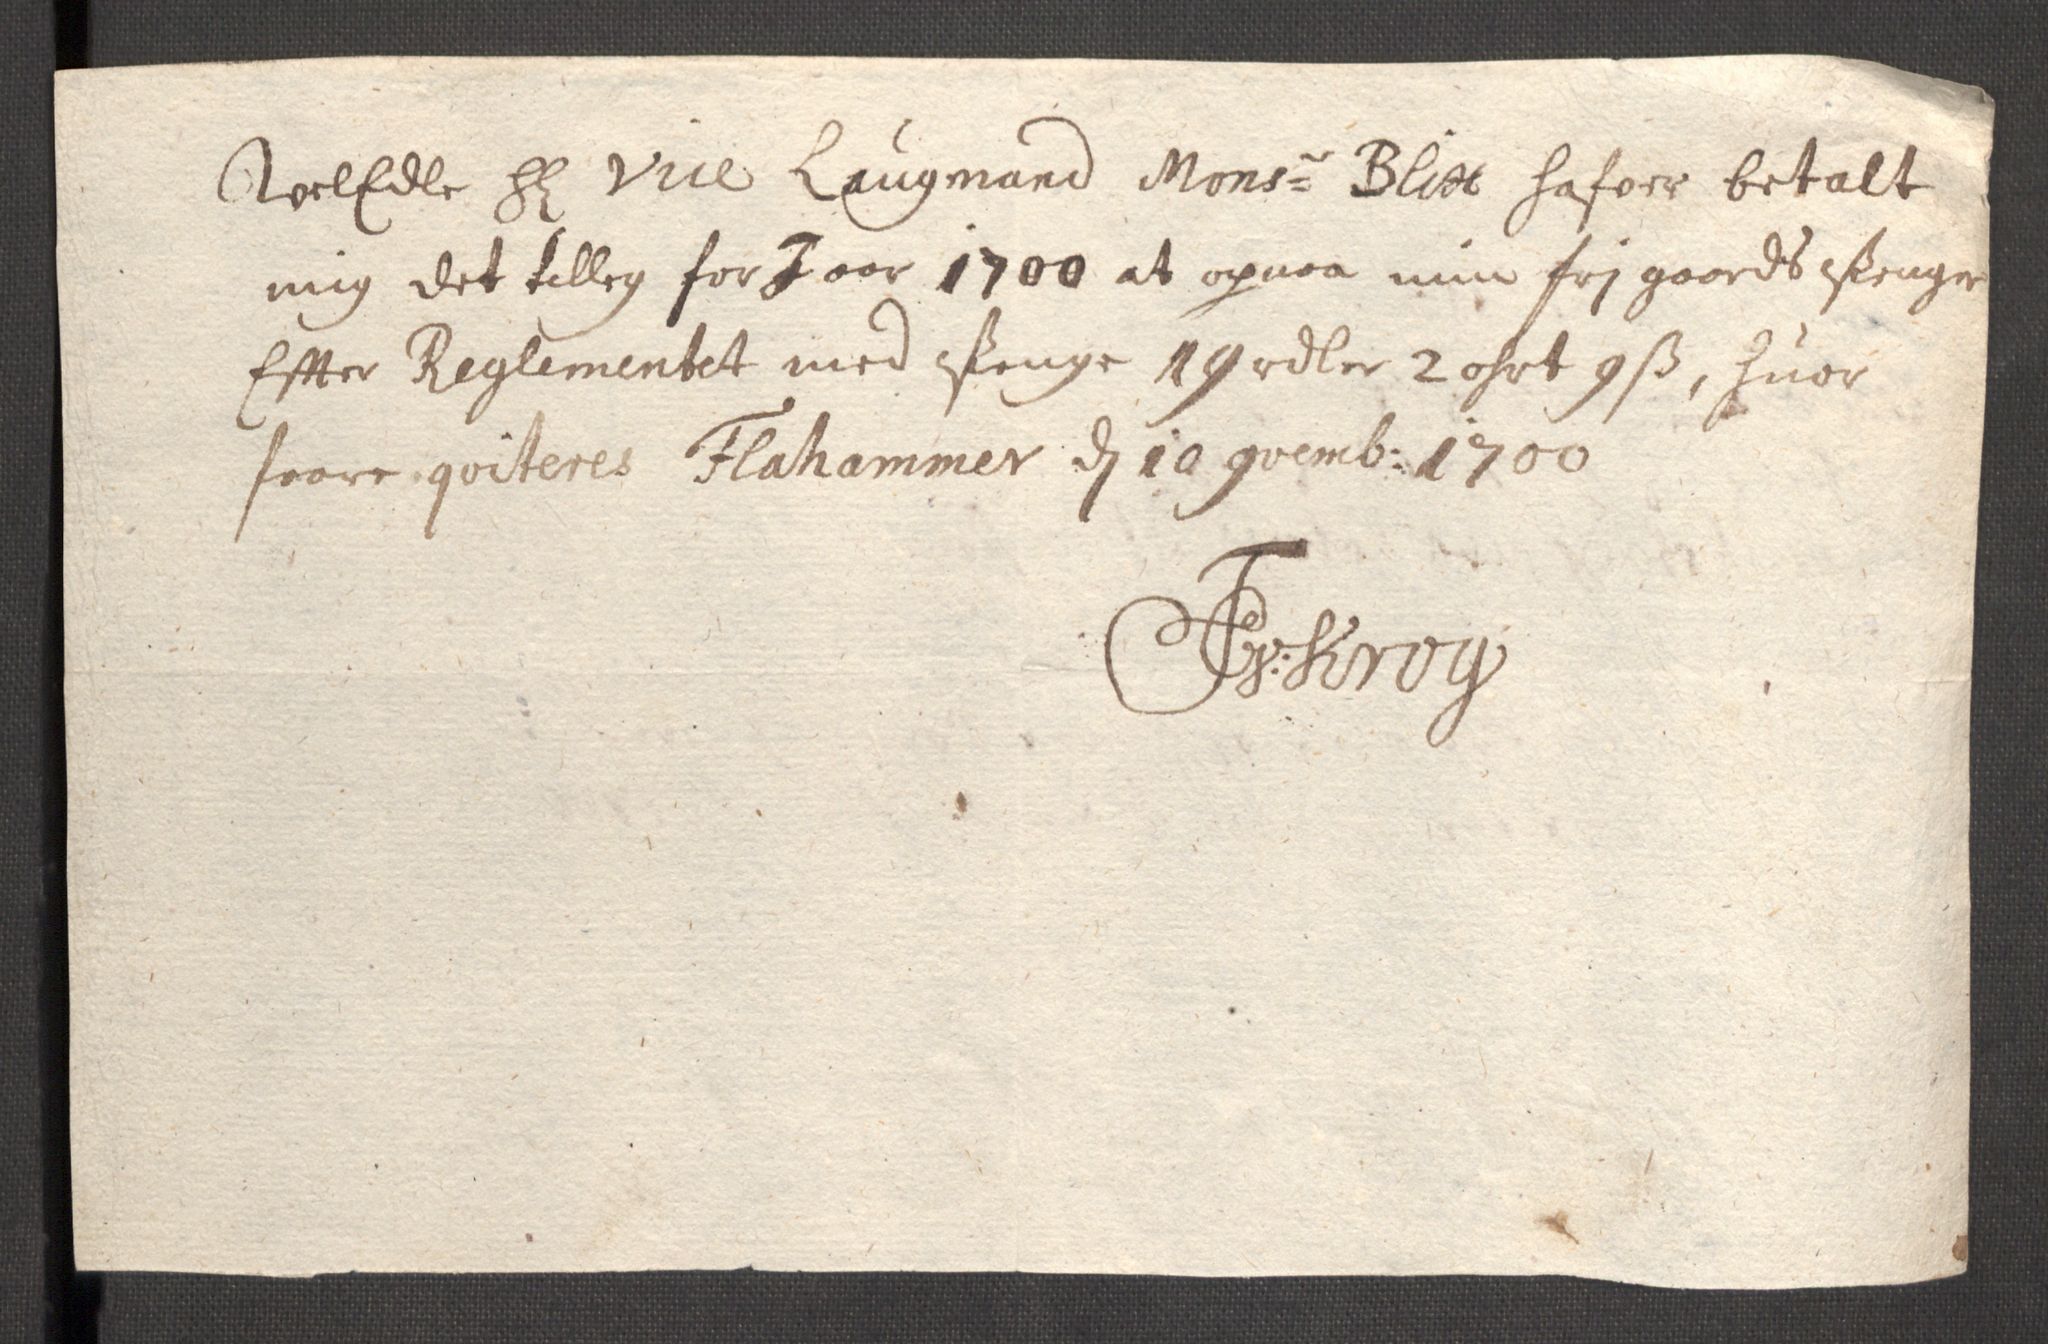 WelEdle Hr Vice Laugmand Monsr Blix hafver betalt
mig det tilleg for J aar 1700 at opnaa min frj gaards penge
Effter Reglementet med penge 19 rdler 2 ohrt 9 ß, huor
faare qviteres Flahammer d 10 9vemb: 1700
Krog